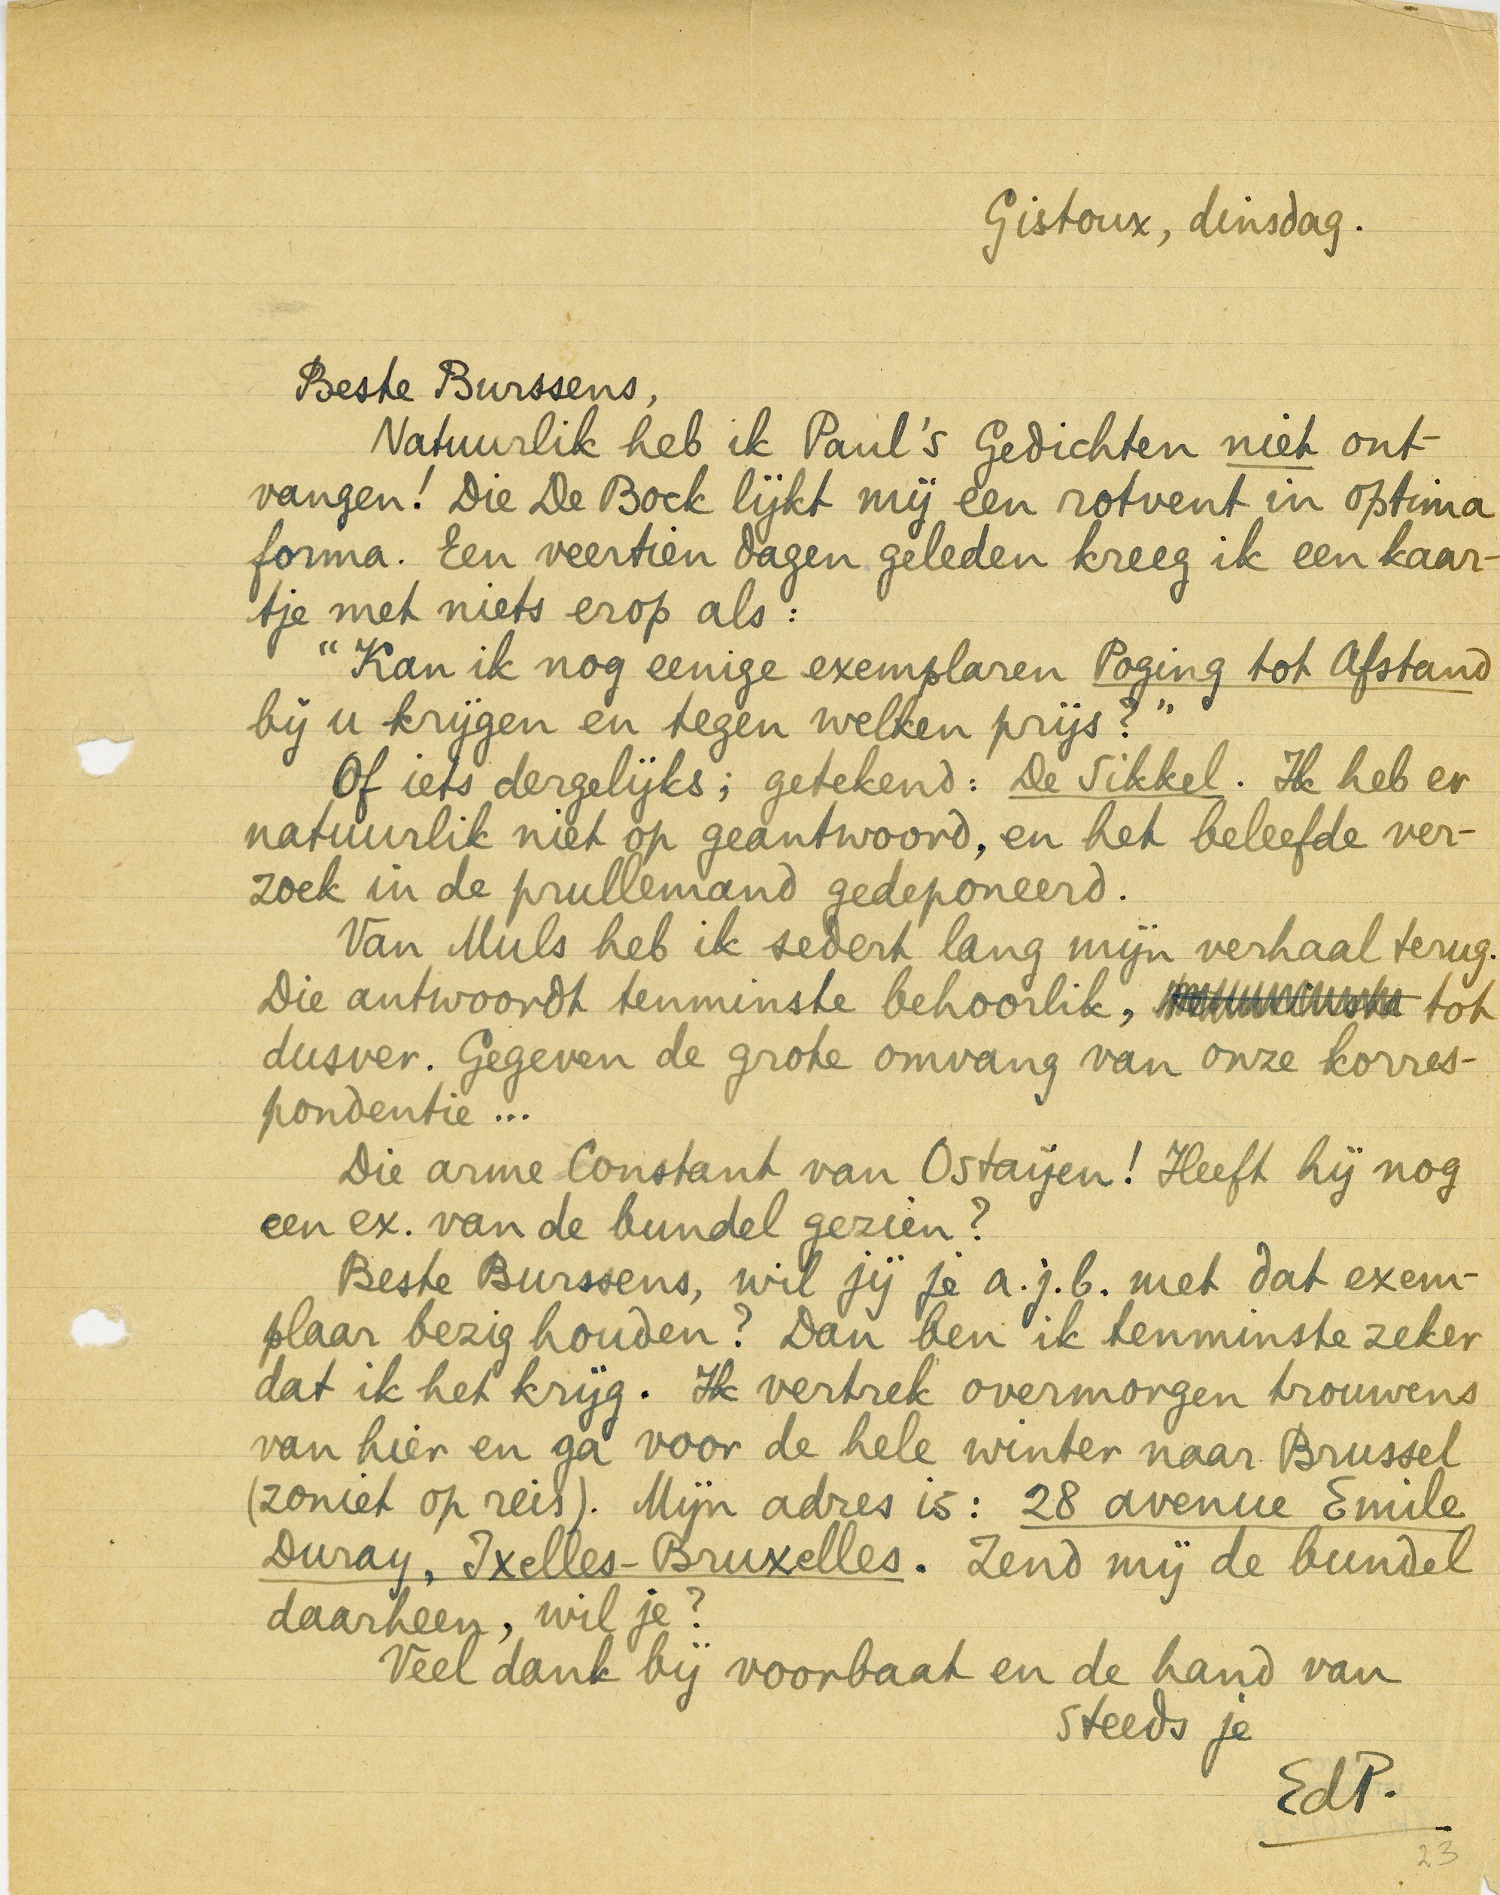 Gistoux, dinsdag.
Beste Burssens,
Natuurlik heb ik Paul's Gedichten niet ont-
vangen! Die De Bock lijkt mij een rotvent in optima
forma. Een veertien dagen geleden kreeg ik een kaar-
tje met niets erop als:
"Kan ik nog eenige exemplaren Poging tot Afstand
bij u krijgen en tegen welken prijs?"
Of iets dergelijks; getekend: De Sikkel. Ik heb er
natuurlik niet op geantwoord, en het beleefde ver-
zoek in de prullemand gedeponeerd.
Van Muls heb ik sedert lang mijn verhaal terug.
Die antwoordt tenminste behoorlik, tot
dusver. Gegeven de grote omvang van onze korres-
pondentie...
Die arme Constant van Ostaijen! Heeft hij nog
een ex. van de bundel gezien?
Beste Burssens, wil jij je a.j.b. met dat exem-
plaar bezig houden? Dan ben ik tenminste zeker
dat ik het krijg. Ik vertrek overmorgen trouwens
van hier en ga voor de hele winter naar Brussel
(zoniet op reis). Mijn adres is: 28 avenue Emile
Duray, Ixelles-Bruxelles. Zend mij de bundel
daarheen, wil je?
Veel dank bij voorbaat en de hand van
steeds je
EdP.
23